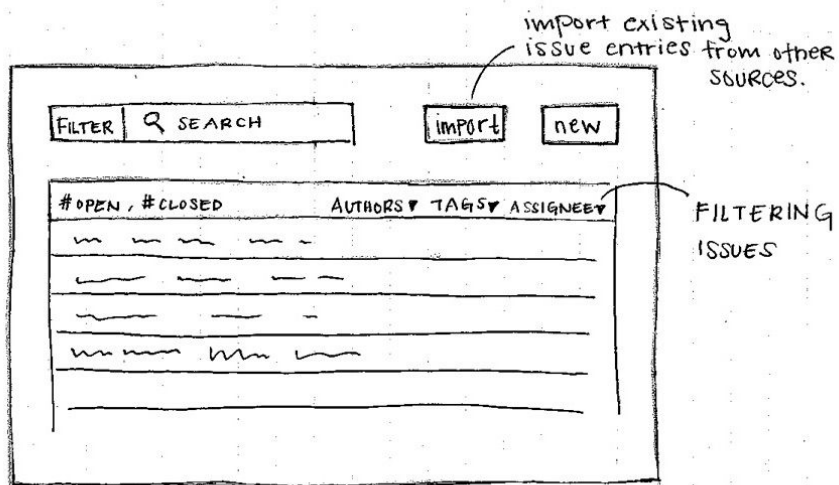 import existing
issue entries from other
sources.
FILTER SEARCH import new
#OPEN, #CLOSED AUTHORS▼ TAGS▼ ASSIGNEE▼
FILTERING
ISSUES